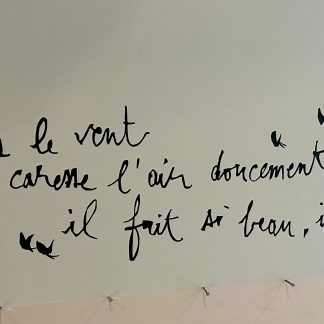 le vent
caresse l'air doucement
il fait si beau,